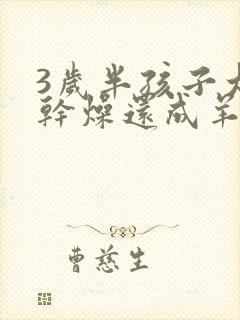 3歲半孩子大
幹燥還成羊
曹慈生